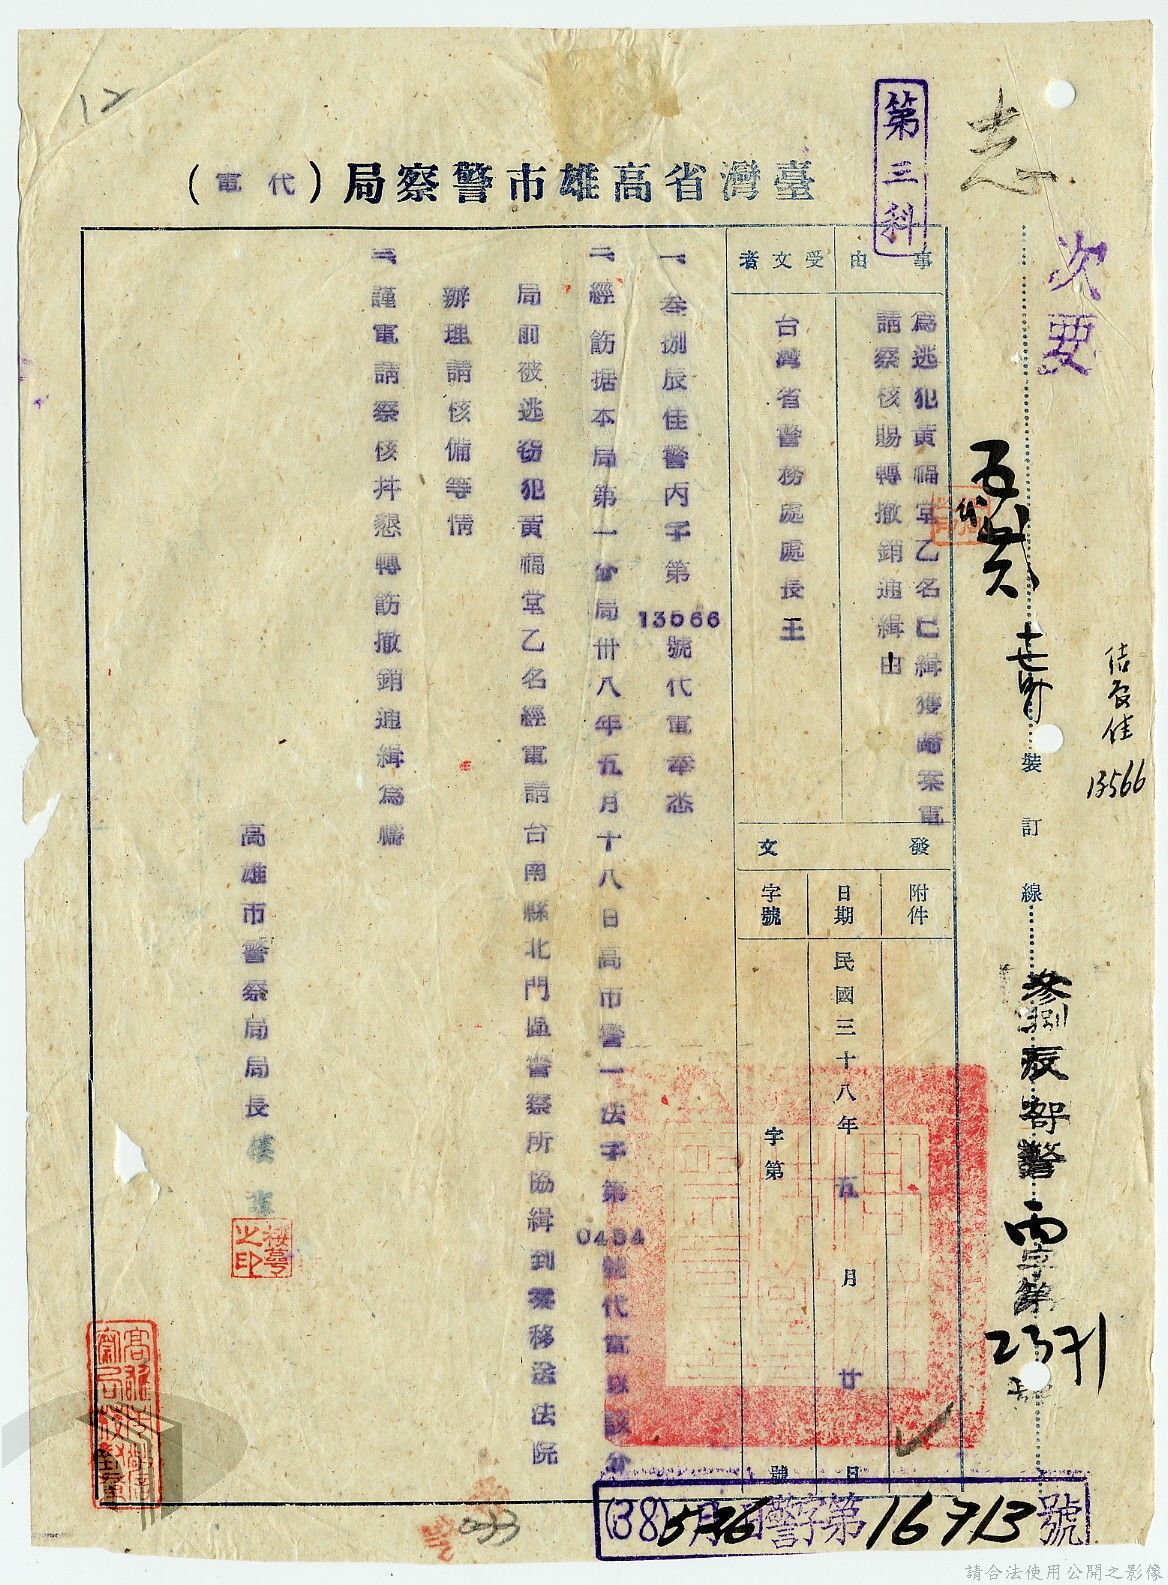 12
第三科
臺灣省高雄市警察局（代電）
次要
事由
為逃犯黃福堂乙名已緝獲歸案電
請察核賜轉撤銷通緝由
受文者
台灣省警務處處長王
發文
附件
日期
民國三十八年五月廿日
字號
字第 號
一、叁捌辰佳警丙字第13566號代電奉悉
二、經飭据本局第一分局卅八年五月十八日高市警一法字第0454號代電以該分
局前被逃竊犯黃福堂乙名經電請台南縣北門區警察所協緝到案移送法院
辦理請核備等情
三、謹電請察核并懇轉飭撤銷通緝為禱
高雄市警察局局長
裝訂線
13566
叁捌辰 警丙字第2371號
(38) 警字第16713號
033
請合法使用公開之影像